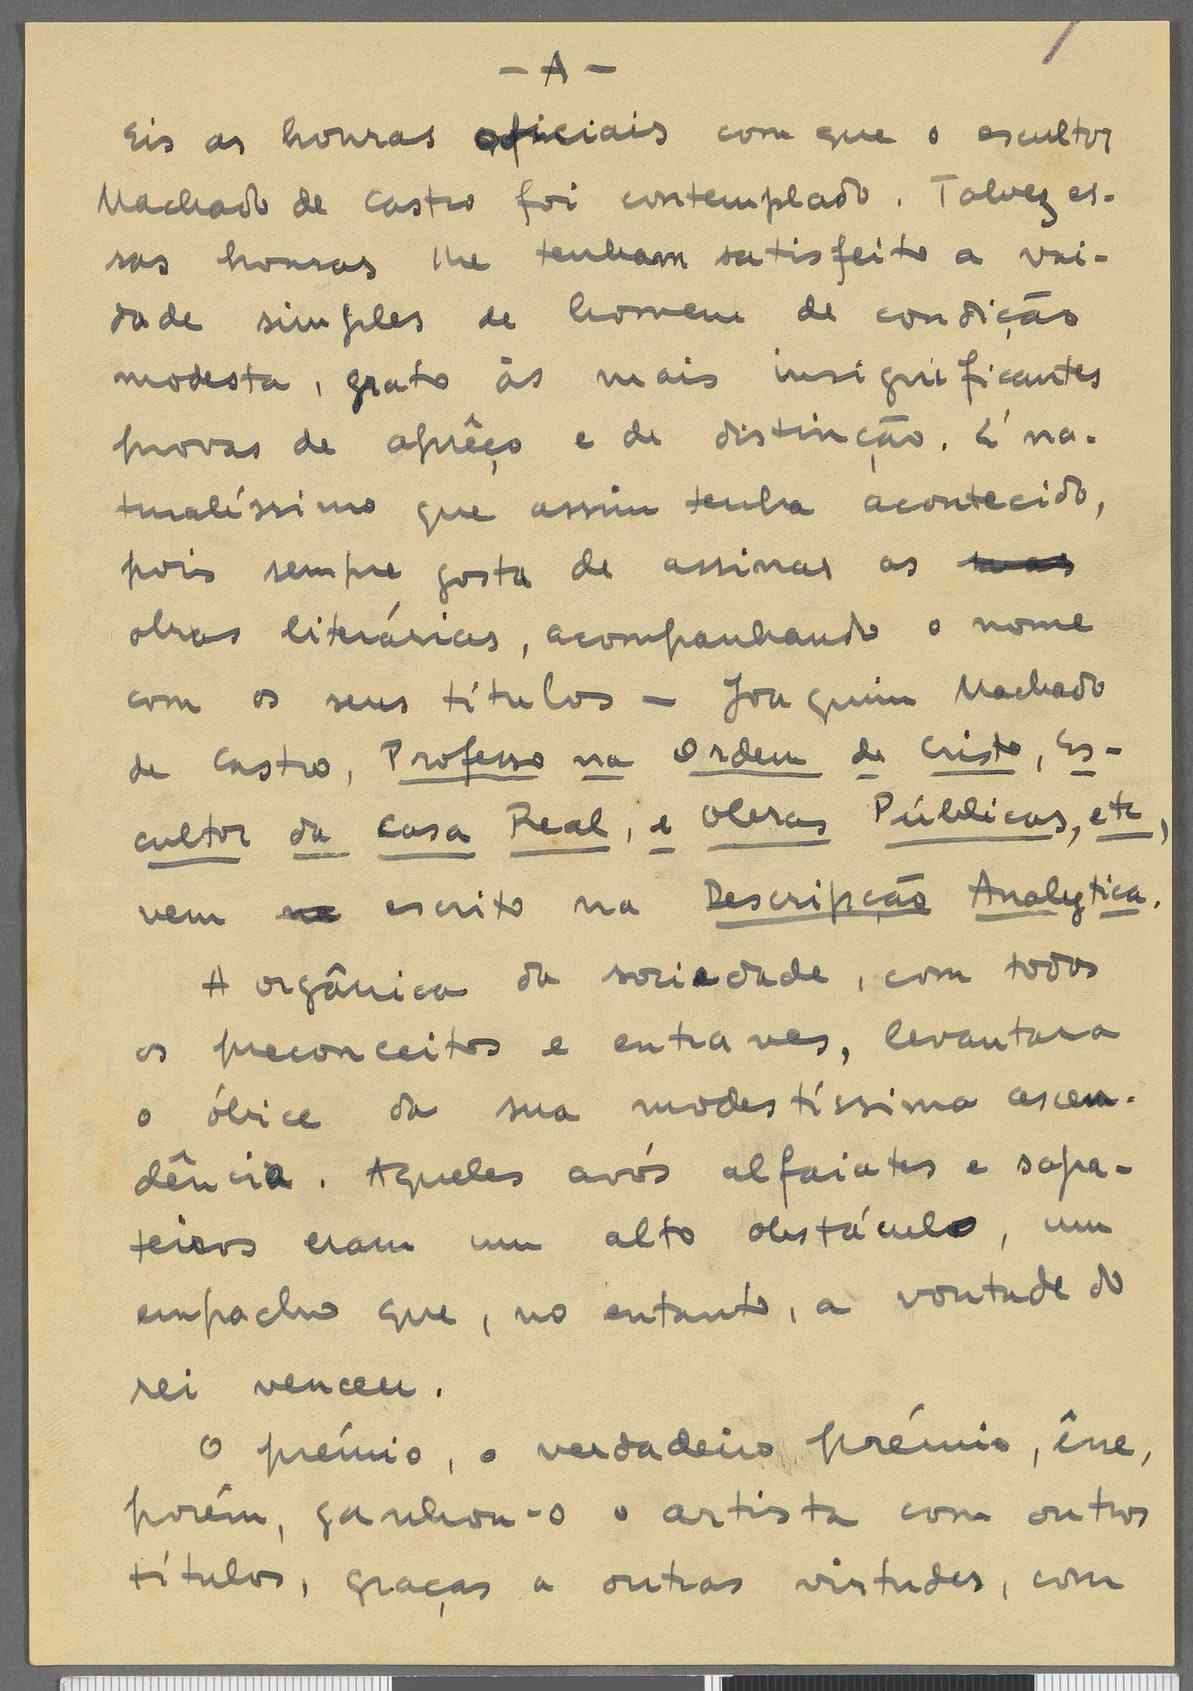 - A -
Eis as honras oficiais com que o escultor
Machado de Castro foi contemplado. Talvez es-
sas honras lhe tenham satisfeito a vai-
dade simples de homem de condição
modesta, grato às mais insignificantes
provas de aprêço e de distinção. É na-
turalíssimo que assim tenha acontecido,
pois sempre gosta de assinar as suas
obras literárias, acompanhando o nome
com os seus títulos — Joaquim Machado
de Castro, Professo na Ordem de Cristo, Es-
cultor da Casa Real, e Obras Públicas, etc,
vem na escrito na Descripção Analytica.
A orgânica da sociedade, com todos
os preconceitos e entraves, levantara
o óbice da sua modestíssima ascen-
dência. Aqueles avós alfaiates e sapa-
teiros eram um alto obstáculo, um
empacho que, no entanto, a vontade do
rei venceu.
O prémio, o verdadeiro prémio, êsse,
porém, ganhou-o o artista com outros
títulos, graças a outras virtudes, com